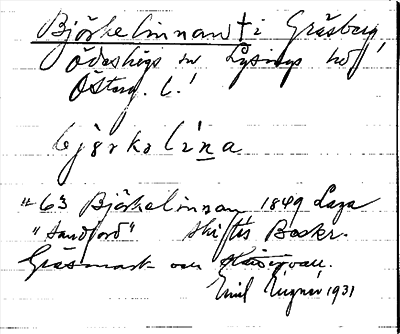 Björkelinnan † i Gräsberg,
Ödeshögs sn Lysings hd
Österg. l.
bjørkalina
"63 Björkelinnan 1849 Laga
"Sandjord" skiftes Beskr.
Gräsmark och
Emil 1931